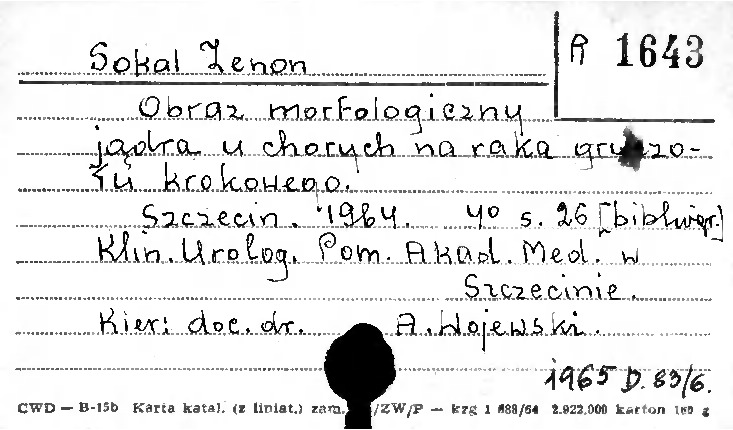 Sokal Zenon
R 1643
Obraz morfologiczny
jądra u chorych na raka gruczo-
łu krokowego.
Szczecin. 1964. 4° s. 26 [bibliogr.]
Klin. Urolog. Pom. Akad. Med. w
Szczecinie.
Kier: doc. dr. A. Wojewski.
1965 D. 83/6.
CWD — B-15b Karta katal. (z liniat.) zam. /ZW/P — krg 1 888/64 2.922.000 karton 160 g